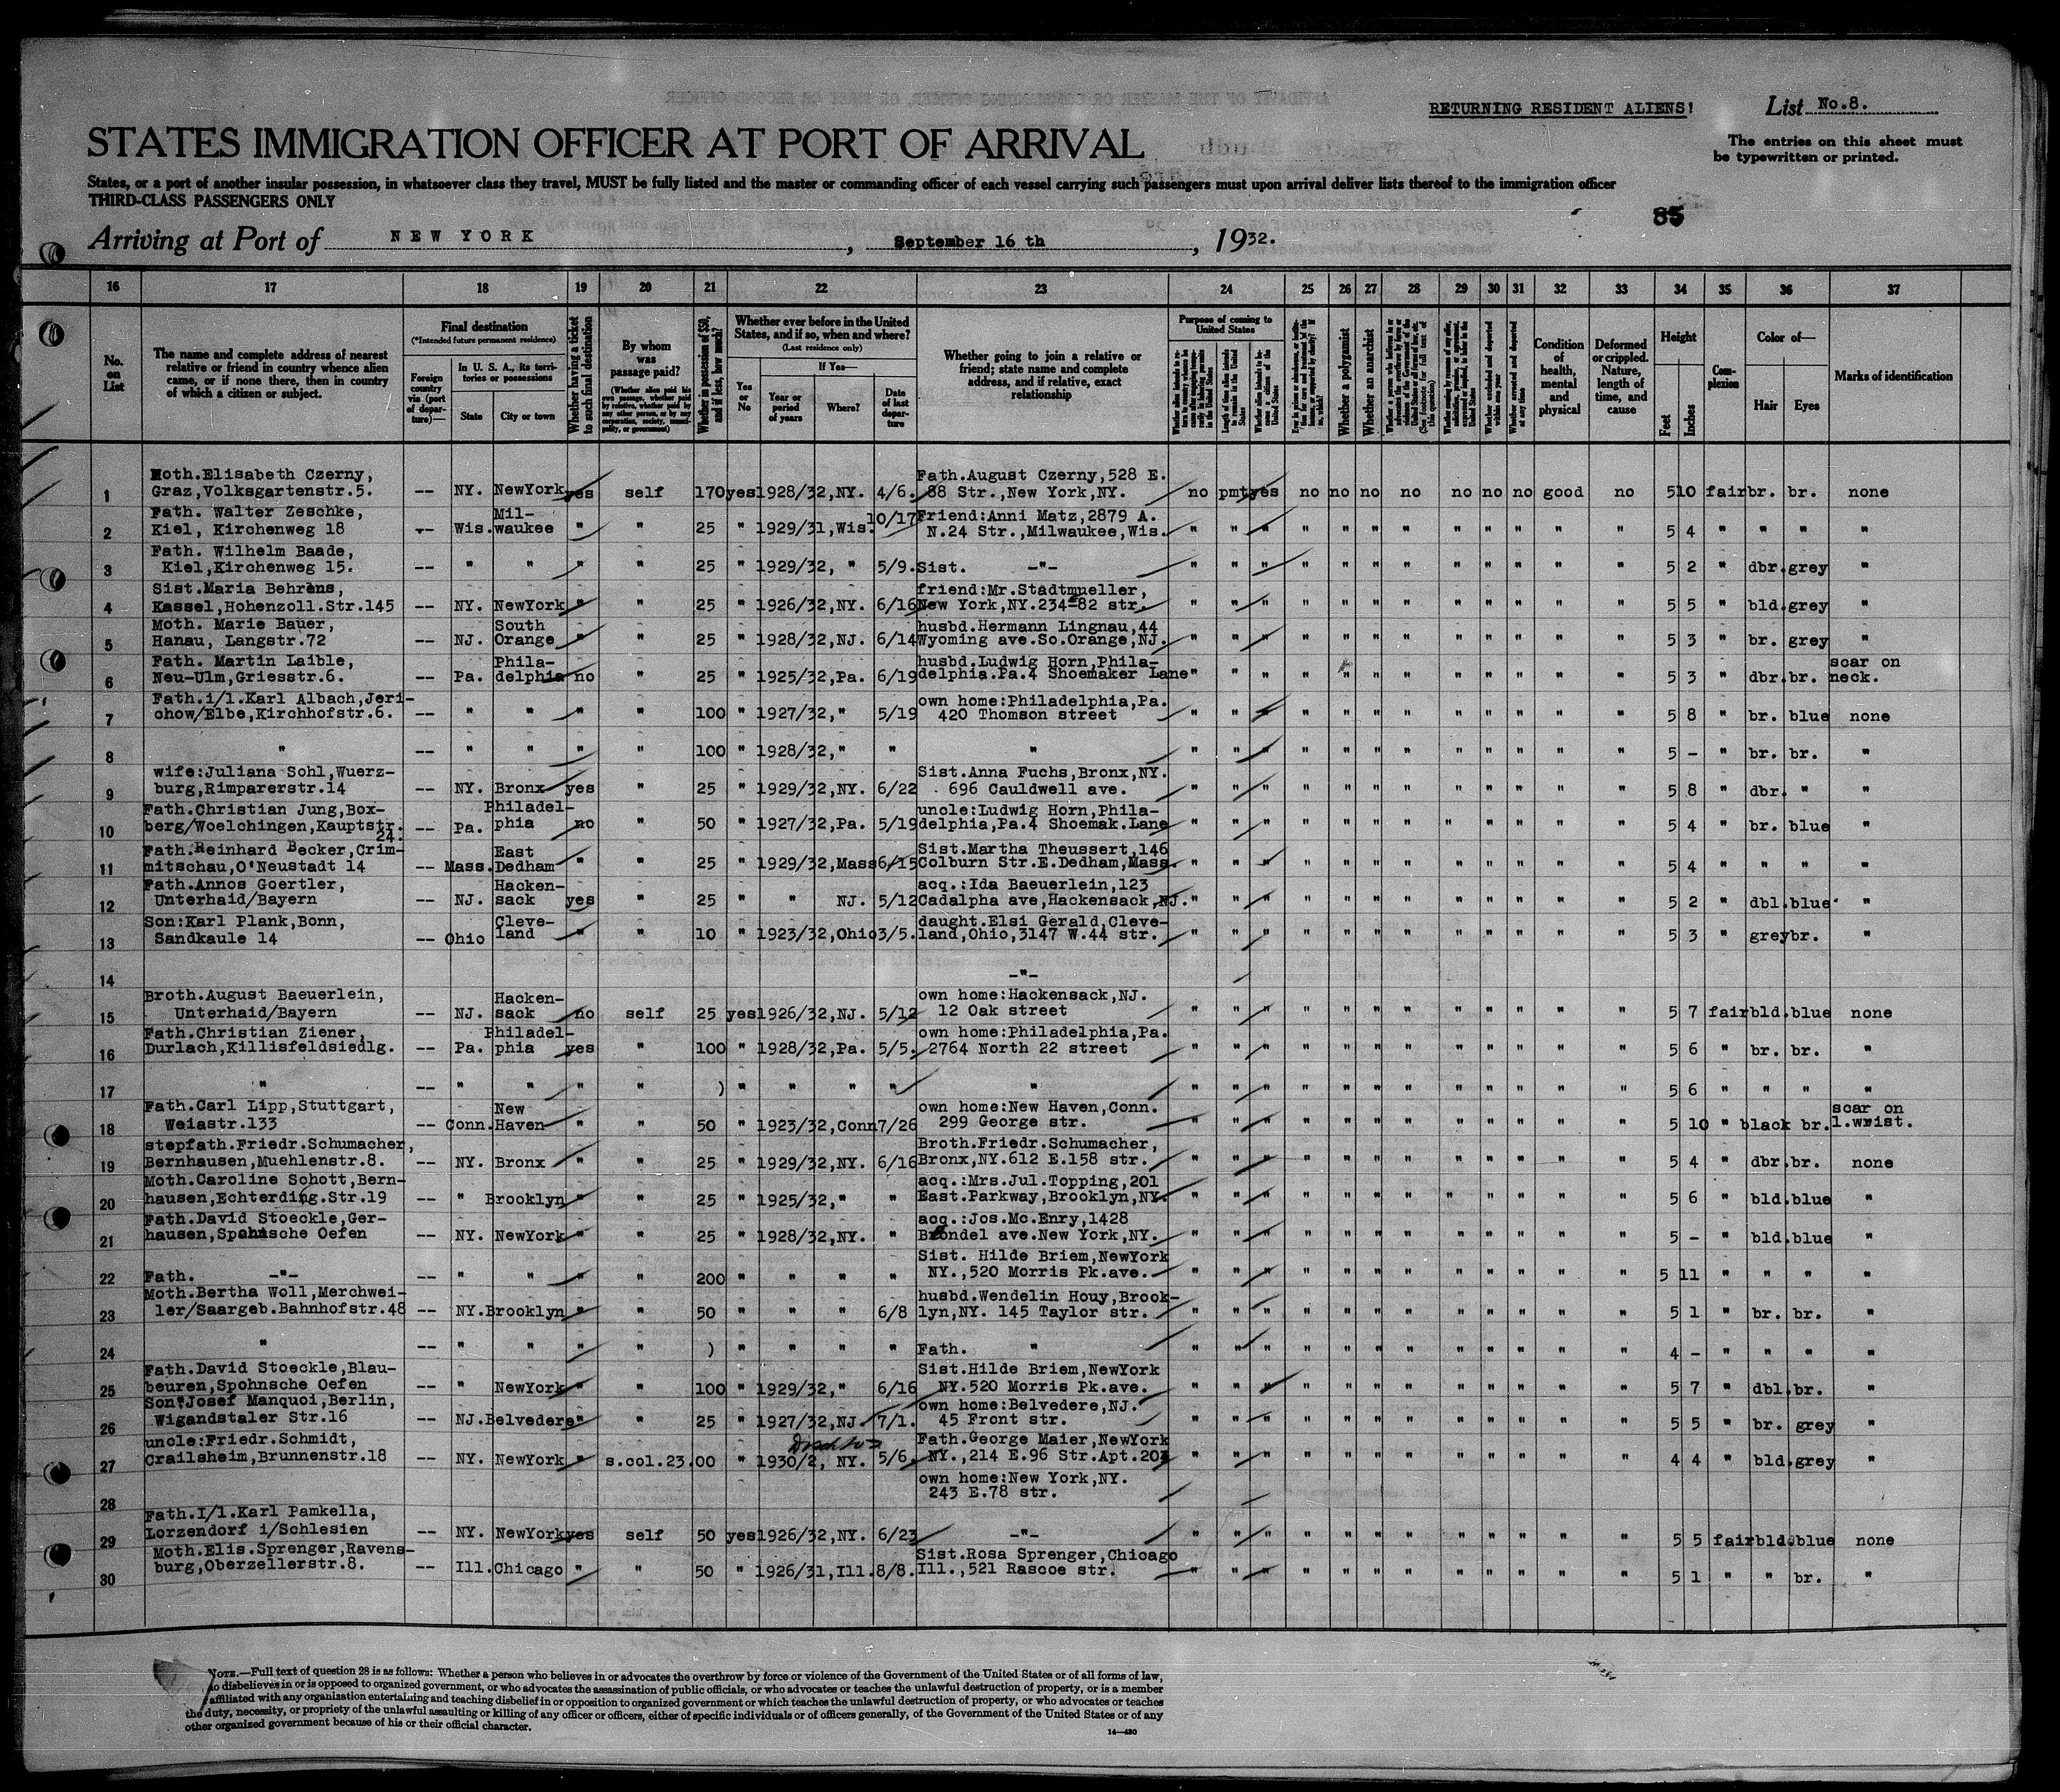 RETURNING RESIDENT ALIENS!
List No.8.
STATES IMMIGRATION OFFICER AT PORT OF ARRIVAL
The entries on this sheet must
be typewritten or printed.
States, or a port of another insular possession, in whatsoever class they travel, MUST be fully listed and the master or commanding officer of each vessel carrying such passengers must upon arrival deliver lists thereof to the immigration officer
THIRD-CLASS PASSENGERS ONLY
85
Arriving at Port of NEW YORK, September 16 th, 1932.
16 17 18 19 20 21 22 23 24 25 26 27 28 29 30 31 32 33 34 35 36 37
No. on List
The name and complete address of nearest relative or friend in country whence alien came, or if none there, then in country of which a citizen or subject.
Final destination
(*Intended future permanent residence)
Foreign country via (port of departure)—
In U. S. A., its territories or possessions
State
City or town
Whether having a ticket to such final destination
By whom was passage paid?
(Whether alien paid his own passage, whether paid by relative, whether paid by any other person, or by any corporation, society, municipality, or government)
Whether in possession of $50, and if less, how much?
Whether ever before in the United States, and if so, when and where?
(Last residence only)
Yes or No
If Yes—
Year or period of years
Where?
Date of last departure
Whether going to join a relative or friend; state name and complete address, and if relative, exact relationship
Purpose of coming to United States
Whether a polygamist
Whether an anarchist
Condition of health, mental and physical
Deformed or crippled. Nature, length of time, and cause
Height
Feet
Inches
Complexion
Color of—
Hair
Eyes
Marks of identification
1 Moth.Elisabeth Czerny, Graz,Volksgartenstr.5. -- NY. NewYork yes self 170 yes 1928/32,NY. 4/6. Fath.August Czerny,528 E. 88 Str.,New York,NY. no pmt yes no no no no no no no good no 5 10 fair br. br. none
2 Fath. Walter Zeschke, Kiel, Kirchenweg 18 -- Wis. Mil-waukee " " 25 " 1929/31,Wis. 10/17 Friend:Anni Matz,2879 A. N.24 Str.,Milwaukee,Wis. " " " " " " " " " " " " 5 4 " " " "
3 Fath. Wilhelm Baade, Kiel,Kirchenweg 15. -- " " " " 25 " 1929/32, " 5/9. Sist. -"- " " " " " " " " " " " " 5 2 " dbr. grey "
4 Sist.Maria Behrens, Kassel,Hohenzoll.Str.145 -- NY. NewYork " " 25 " 1926/32,NY. 6/16 friend:Mr.Stadtmueller, New York,NY.234-82 str. " " " " " " " " " " " " 5 5 " bld. grey "
5 Moth. Marie Bauer, Hanau, Langstr.72 -- NJ. South Orange " " 25 " 1928/32,NJ. 6/14 husbd.Hermann Lingnau,44 Wyoming ave.So.Orange,NJ. " " " " " " " " " " " " 5 3 " br. grey "
6 Fath. Martin Laible, Neu-Ulm,Griesstr.6. -- Pa. Phila-delphia no " 25 " 1925/32,Pa. 6/19 husbd.Ludwig Horn,Phila-delphia.Pa.4 Shoemaker Lane " " " " " " " " " " " " 5 3 " dbr. br. scar on neck.
7 Fath.i/l.Karl Albach,Jeri-chow/Elbe,Kirchhofstr.6. -- " " " " 100 " 1927/32," 5/19 own home:Philadelphia,Pa. 420 Thomson street " " " " " " " " " " " " 5 8 " br. blue none
8 " -- " " " " 100 " 1928/32," " " " " " " " " " " " " " " 5 - " br. br. "
9 wife:Juliana Sohl,Wuerz-burg,Rimparerstr.14 -- NY. Bronx yes " 25 " 1929/32,NY. 6/22 Sist.Anna Fuchs,Bronx,NY. 696 Cauldwell ave. " " " " " " " " " " " " 5 8 " dbr. " "
10 Fath.Christian Jung,Box-berg/Woelchingen,Kauptstr. 24. -- Pa. Philadel-phia no " 50 " 1927/32,Pa. 5/19 uncle:Ludwig Horn,Phila-delphia,Pa.4 Shoemak.Lane " " " " " " " " " " " " 5 4 " br. blue "
11 Fath.Reinhard Becker,Crim-mitschau,O'Neustadt 14 -- Mass. East Dedham " " 25 " 1929/32,Mass 6/15 Sist.Martha Theussert,146 Colburn Str.E.Dedham,Mass. " " " " " " " " " " " " 5 4 " " " "
12 Fath.Annos Goertler, Unterhaid/Bayern -- NJ. Hacken-sack yes " 25 " " NJ. 5/12 acq.:Ida Baeuerlein,123 Cadalpha ave,Hackensack,NJ. " " " " " " " " " " " " 5 2 " dbl. blue "
13 Son:Karl Plank,Bonn, Sandkaule 14 -- Ohio Cleve-land " " 10 " 1923/32,Ohio 3/5. daught.Elsi Gerald,Cleve-land,Ohio,3147 W.44 str. " " " " " " " " " " " " 5 3 " grey br. "
14 -"-
15 Broth.August Baeuerlein, Unterhaid/Bayern -- NJ. Hacken-sack no self 25 yes 1926/32,NJ. 5/12 own home:Hackensack,NJ. 12 Oak street " " " " " " " " " " " " 5 7 fair bld. blue none
16 Fath.Christian Ziener, Durlach,Killisfeldsiedlg. -- Pa. Philadel-phia yes " 100 " 1928/32,Pa. 5/5. own home:Philadelphia,Pa. 2764 North 22 street " " " " " " " " " " " " 5 6 " br. br. "
17 " -- " " " " ) " " " " " " " " " " " " " " " " " 5 6 " " " "
18 Fath.Carl Lipp,Stuttgart, Weiastr.133 -- Conn. New Haven " " 50 " 1923/32,Conn 7/26 own home:New Haven,Conn. 299 George str. " " " " " " " " " " " " 5 10 " black br. scar on l.wrist.
19 stepfath.Friedr.Schumacher, Bernhausen,Muehlenstr.8. -- NY. Bronx " " 25 " 1929/32,NY. 6/16 Broth.Friedr.Schumacher, Bronx,NY.612 E.158 str. " " " " " " " " " " " " 5 4 " dbr. br. none
20 Moth.Caroline Schott,Bern-hausen,Echterding.Str.19 -- " Brooklyn " " 25 " 1925/32," " acq.:Mrs.Jul.Topping,201 East.Parkway,Brooklyn,NY. " " " " " " " " " " " " 5 6 " bld. blue "
21 Fath.David Stoeckle,Ger-hausen,Spohnsche Oefen -- NY. NewYork " " 25 " 1928/32,NY. " acq.:Jos.Mc.Enry,1428 Blondel ave.New York,NY. " " " " " " " " " " " " 5 - " bld. blue "
22 Fath. -"- -- " " " " 200 " " " " Sist. Hilde Briem,NewYork NY.,520 Morris Pk.ave. " " " " " " " " " " " " 5 11 " " " "
23 Moth.Bertha Woll,Merchwei-ler/Saargeb.Bahnhofstr.48 -- NY. Brooklyn " " 50 " " " 6/8 husbd.Wendelin Houy,Brook-lyn,NY. 145 Taylor str. " " " " " " " " " " " " 5 1 " br. br. "
24 " -- " " " " ) " " " " Fath. " " " " " " " " " " " " " 4 - " " " "
25 Fath.David Stoeckle,Blau-beuren,Spohnsche Oefen -- " NewYork " " 100 " 1929/32," 6/16 Sist.Hilde Briem,NewYork NY.520 Morris Pk.ave. " " " " " " " " " " " " 5 7 " dbl. br. "
26 Son:Josef Manquoi,Berlin, Wigandstaler Str.16 -- NJ. Belvedere " " 25 " 1927/32,NJ. 7/1. own home:Belvedere,NJ. 45 Front str. " " " " " " " " " " " " 5 5 " br. grey "
27 uncle:Friedr.Schmidt, Crailsheim,Brunnenstr.18 -- NY. NewYork " s.col.23.00 " 1930/2, NY. 5/6. Fath.George Maier,NewYork NY.,214 E.96 Str.Apt.203 " " " " " " " " " " " " 4 4 " bld. grey "
28 own home:New York,NY. 243 E.78 str.
29 Fath.I/l.Karl Pamkella, Lorzendorf i/Schlesien -- NY. NewYork yes self 50 yes 1926/32,NY. 6/23 -"- " " " " " " " " " " " " 5 5 fair bld. blue none
30 Moth.Elis.Sprenger,Ravens-burg,Oberzellerstr.8. -- Ill. Chicago " " 50 " 1926/31,Ill. 8/8. Sist.Rosa Sprenger,Chicago Ill.,521 Rascoe str. " " " " " " " " " " " " 5 1 " " br. "
NOTE.—Full text of question 28 is as follows: Whether a person who believes in or advocates the overthrow by force or violence of the Government of the United States or of all forms of law,
or disbelieves in or is opposed to organized government, or who advocates the assassination of public officials, or who advocates or teaches the unlawful destruction of property, or is a member
affiliated with any organization entertaining and teaching disbelief in or opposition to organized government or which teaches the unlawful destruction of property, or who advocates or teaches
the duty, necessity, or propriety of the unlawful assaulting or killing of any officer or officers, either of specific individuals or of officers generally, of the Government of the United States or of any
other organized government because of his or their official character.
14—430